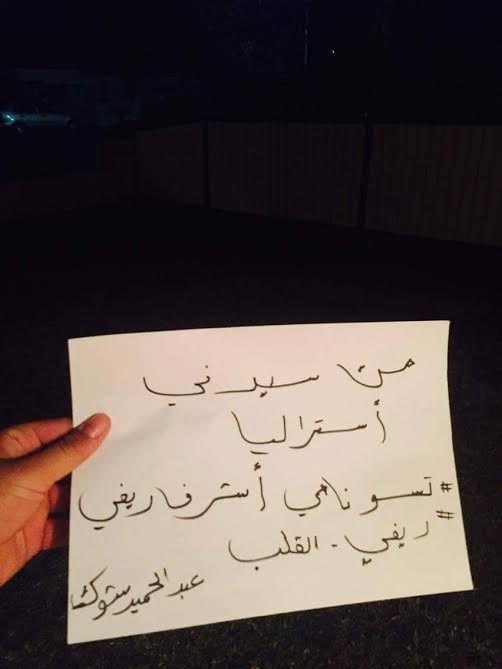 من سيدني
أستراليا
# تسونامي أشرف ريفي
# ريفي - القلب
عبد الحميد شوك